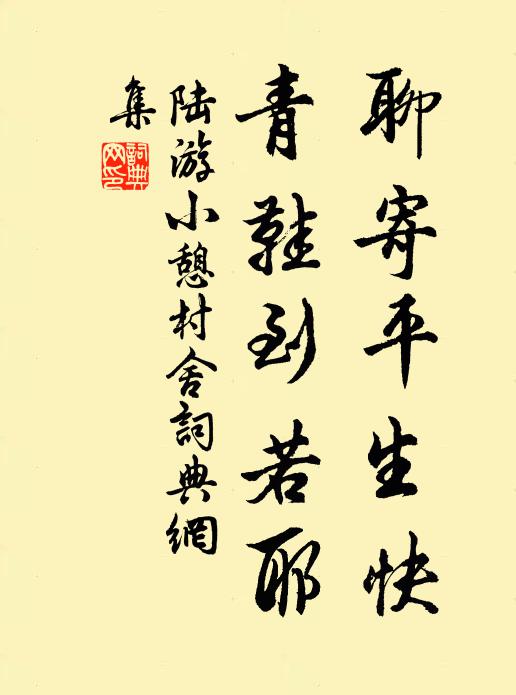 聊寄平生快
青鞋到若耶
陆游小憩村舍詞典網
集
詞典網印